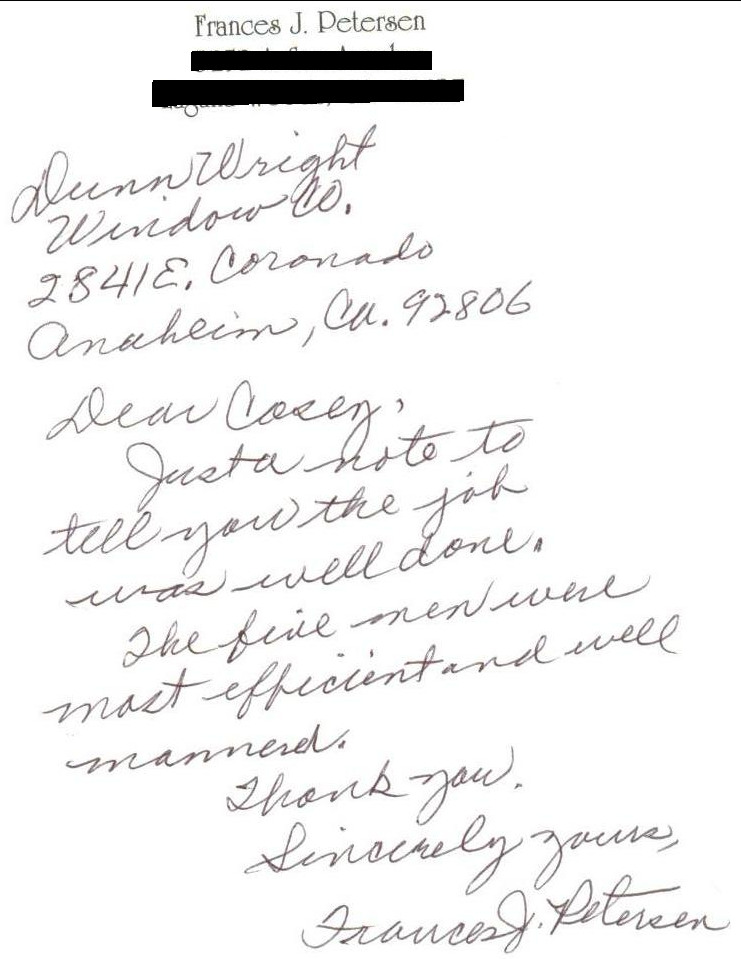 Frances J. Petersen
Dunn Wright
Window Co.
2841 E. Coronado
Anaheim, Ca. 92806
Dear Casey,
Just a note to
tell you the job
was well done.
The five men were
most efficient and well
mannerd.
Thank you.
Sincerely yours,
Frances J. Petersen